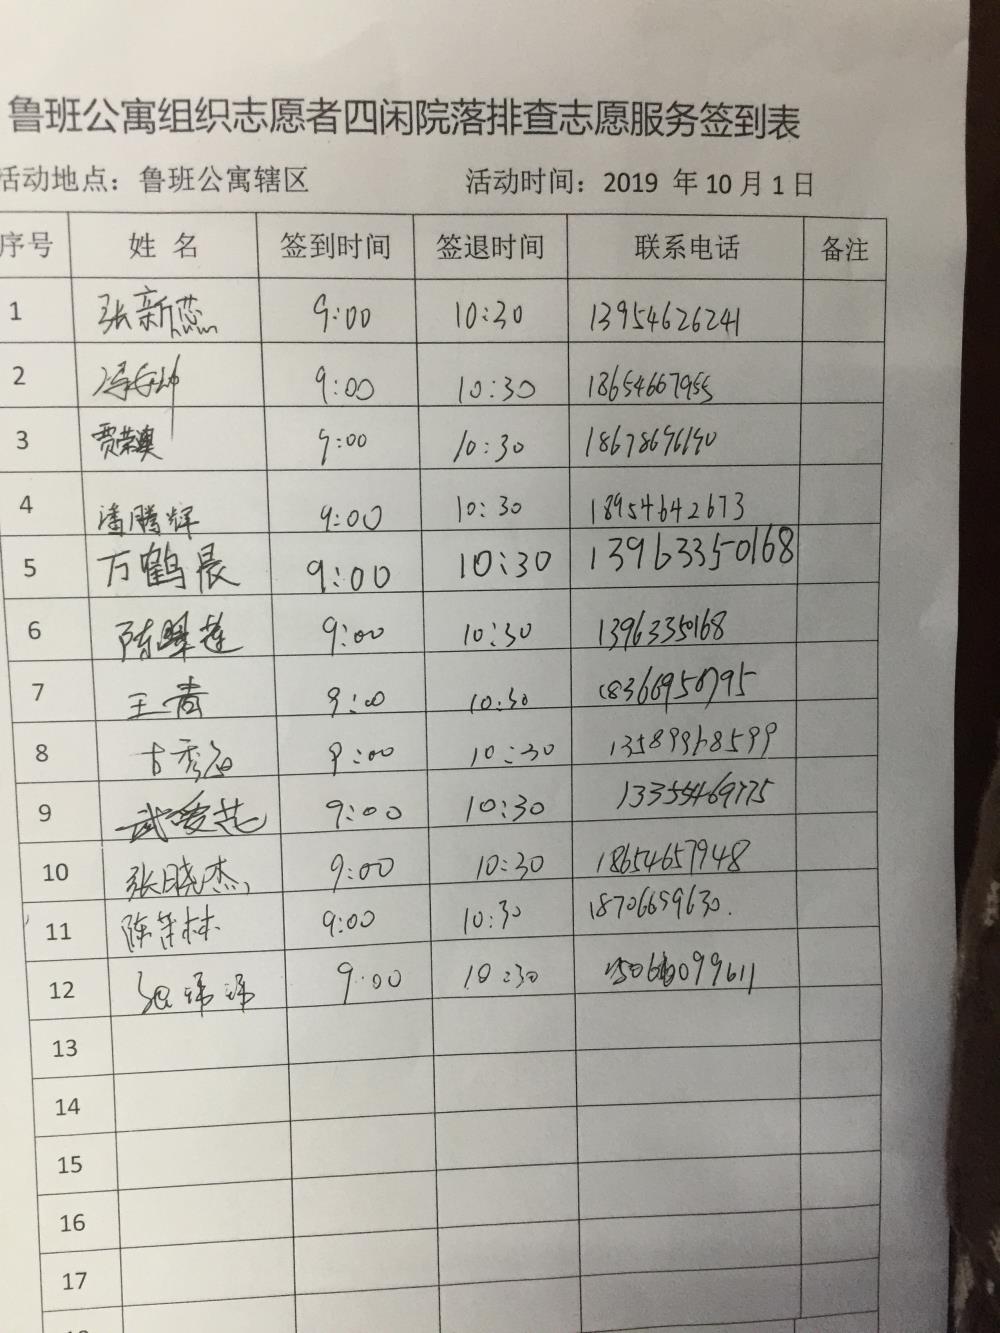 鲁班公寓组织志愿者四闲院落排查志愿服务签到表
活动地点：鲁班公寓辖区 活动时间：2019 年 10 月 1 日
序号 姓 名 签到时间 签退时间 联系电话 备注
1 张新蕊 9:00 10:30 13954626241
2 9:00 10:30 18654667955
3 贾荣澳 9:00 10:30 18678696190
4 潘腾辉 9:00 10:30 18954642673
5 万鹤晨 9:00 10:30 13963350168
6 陈 莲 9:00 10:30 13963350168
7 王青 9:00 10:30 18366950795
8 古秀 9:00 10:30 13589968599
9 武爱花 9:00 10:30 13355469775
10 张晓杰 9:00 10:30 18654657948
11 陈 林 9:00 10:30 18706659630.
12 9:00 10:30
13
14
15
16
17
18